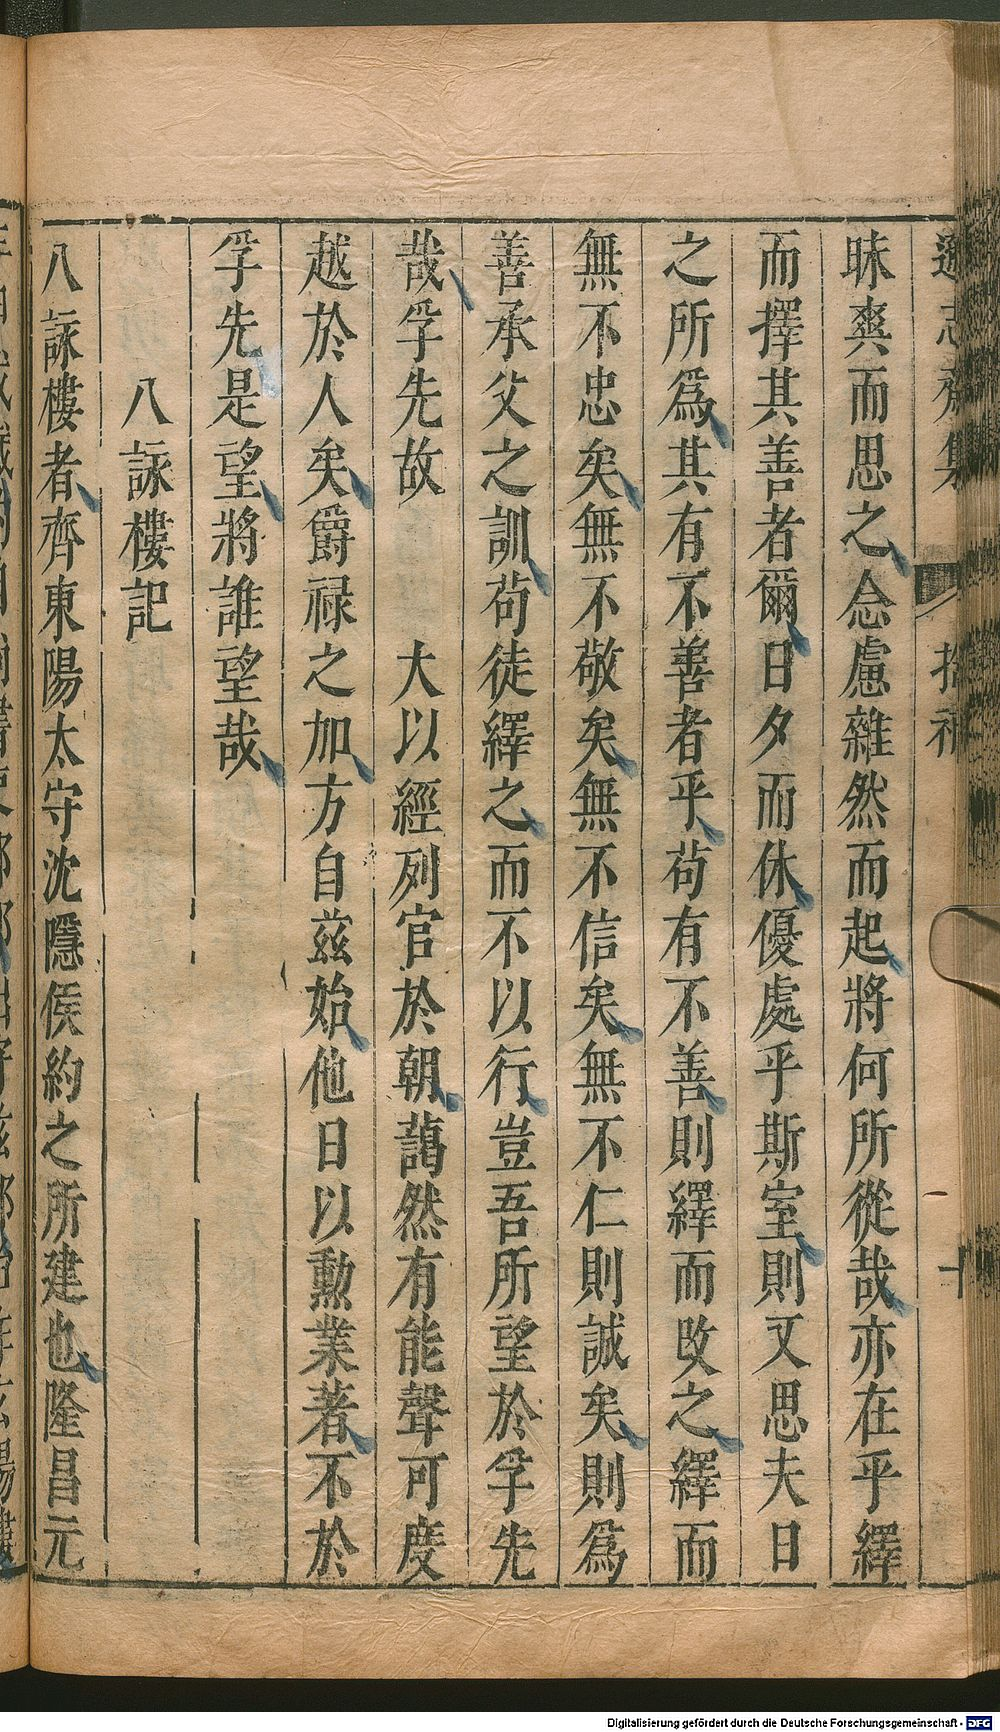 昧爽而思之念慮雜然而起將何所從哉亦在乎繹
而擇其善者爾日夕而休優處乎斯室則又思夫日
之所爲其有不善者乎苟有不善則繹而改之繹而
無不忠矣無不敬矣無不信矣無不仁則誠矣則爲
善承父之訓苟徒繹之而不以行豈吾所望於孚先
哉孚先故　大以經列官於朝藹然有能聲可度
越於人矣爵祿之加方自茲始他日以勳業著不於
孚先是望將誰望哉
八詠樓記
八詠樓者齊東陽太守沈隱侯約之所建也隆昌元
Digitalisierung gefördert durch die Deutsche Forschungsgemeinschaft - DFG